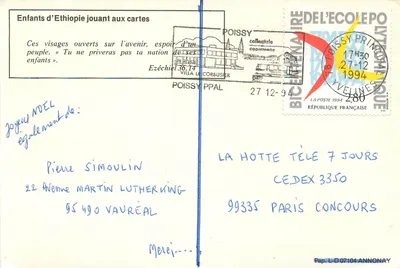 Enfants d'Ethiopie jouant aux cartes
Ces visages ouverts sur l'avenir, espoir d'un
peuple. « Tu ne priveras pas ta nation de ses
enfants ».
Ezéchiel 36,14
POISSY
VILLA LE CORBUSIER
collégiale
POISSY PPAL
27 12-94
BICENTENAIRE DE L'ECOLE POLYTECHNIQUE
LA POSTE 1994
2,80
RÉPUBLIQUE FRANÇAISE
POISSY PRINCIPAL
17H30
27-12
1994
YVELINES
Joyeux NOEL
également de:
Pierre SIMOULIN
22 Avenue MARTIN LUTHER KING
95 490 VAURÉAL
Merci....
LA HOTTE TÉLÉ 7 JOURS
CEDEX 3350
99335 PARIS CONCOURS
Pap. L-D 07104 ANNONAY